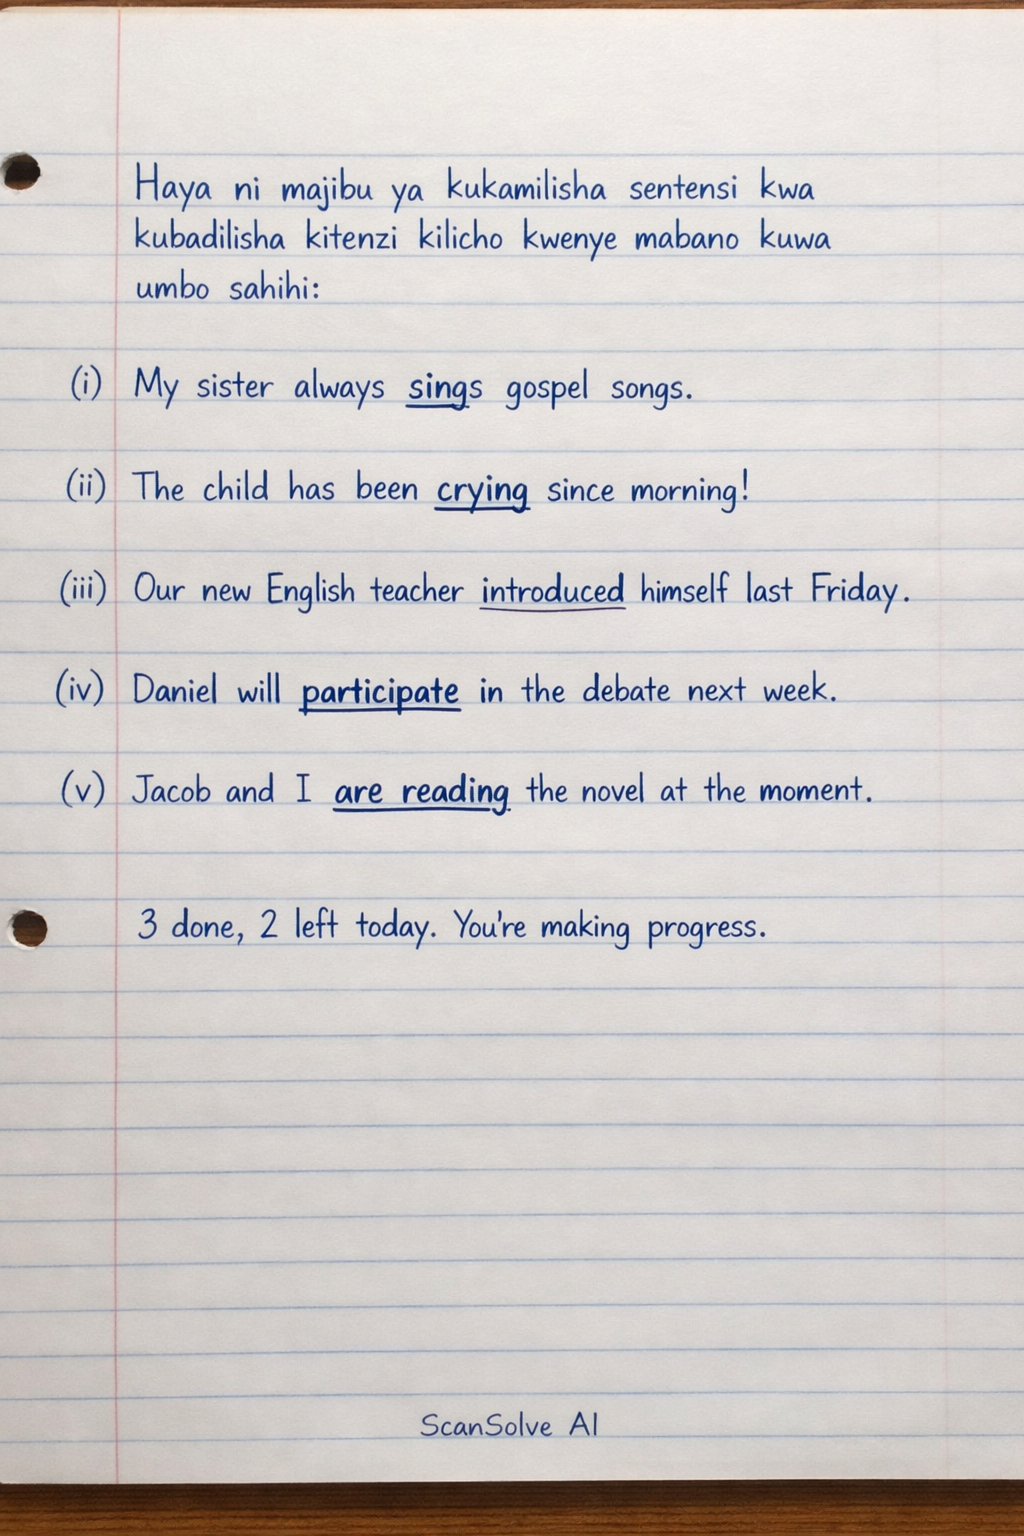 Haya ni majibu ya kukamilisha sentensi kwa
kubadilisha kitenzi kilicho kwenye mabano kuwa
umbo sahihi:
(i) My sister always sings gospel songs.
(ii) The child has been crying since morning!
(iii) Our new English teacher introduced himself last Friday.
(iv) Daniel will participate in the debate next week.
(v) Jacob and I are reading the novel at the moment.
3 done, 2 left today. You're making progress.
ScanSolve AI